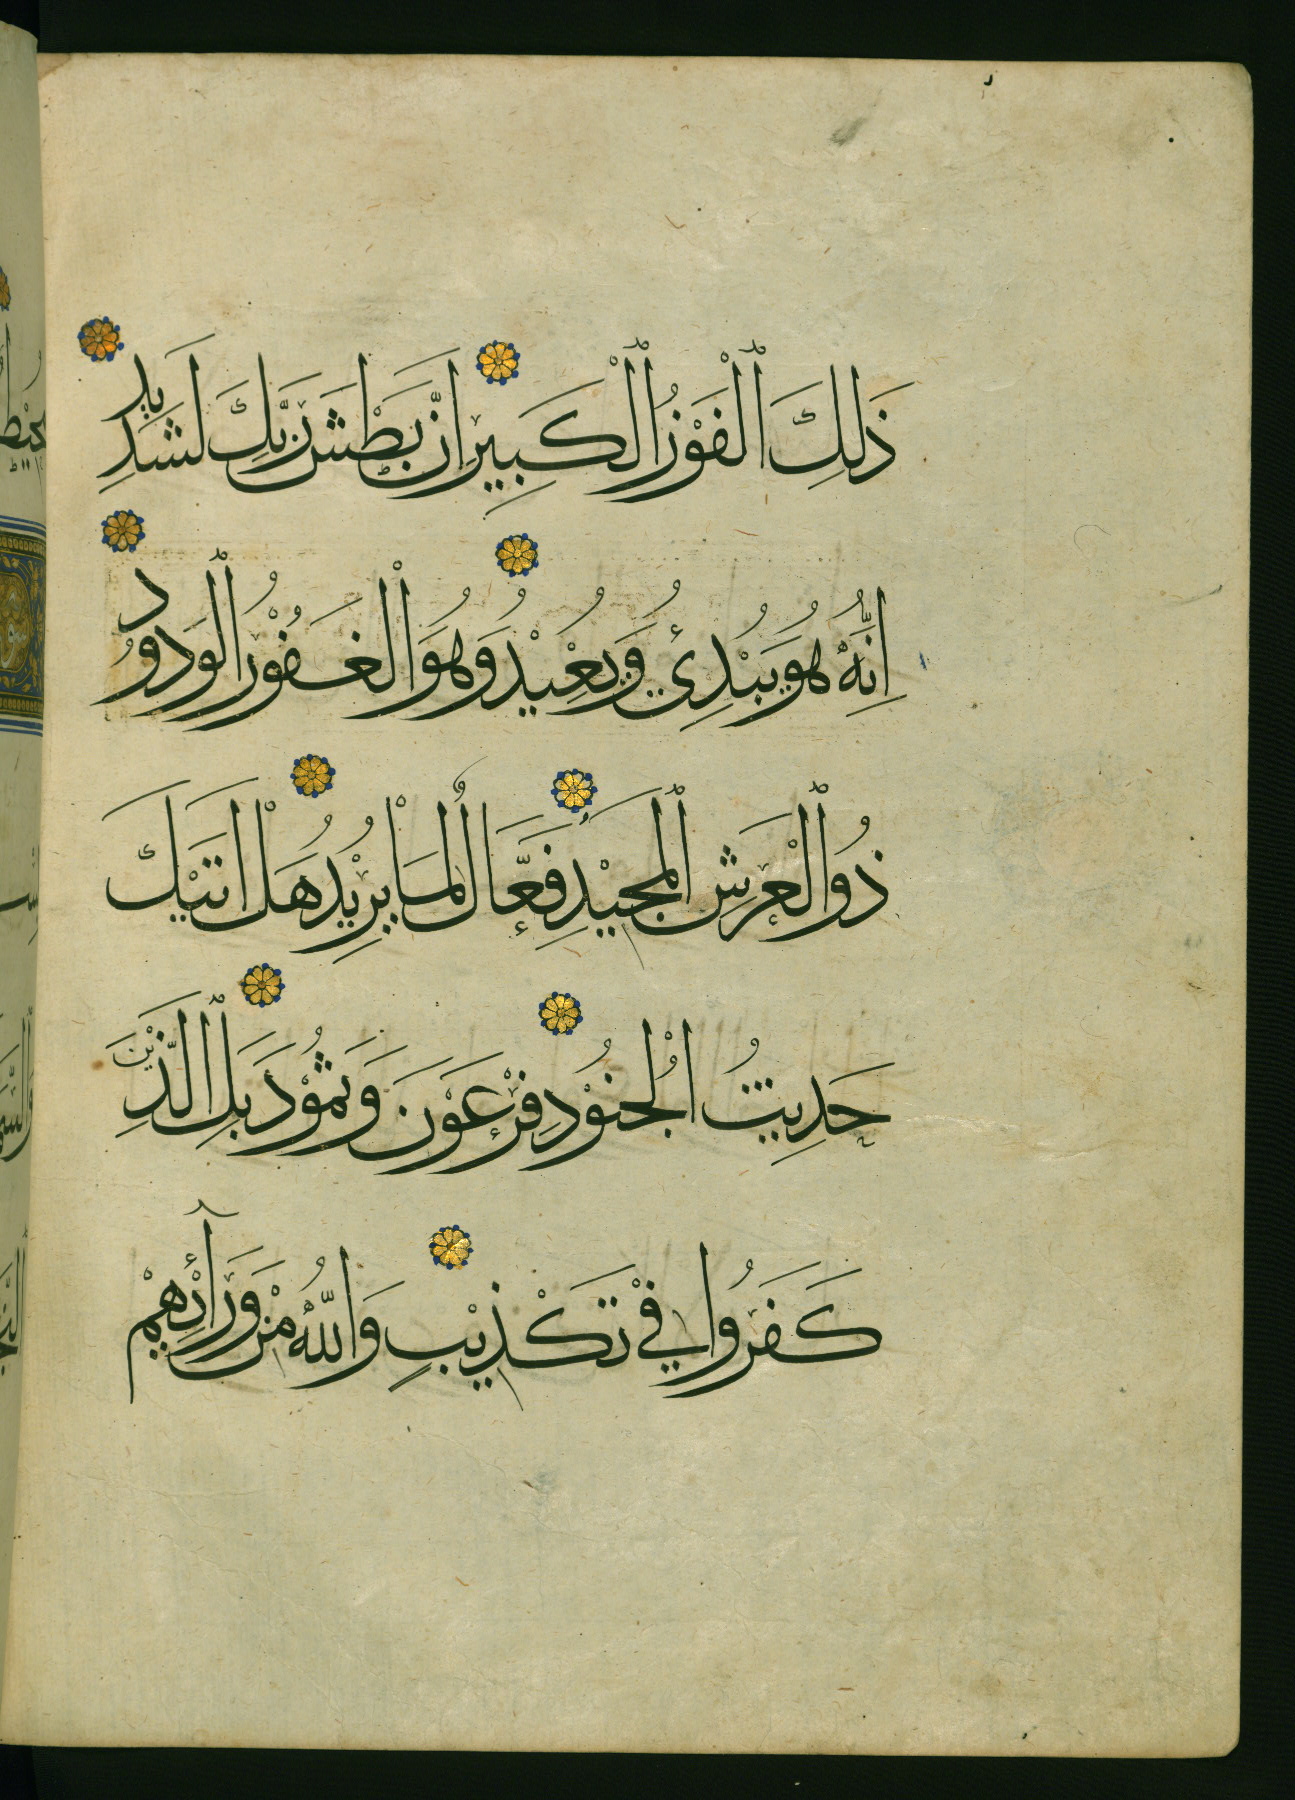 ذَلِكَ ٱلْفَوْزُ ٱلْكَبِيرِ اِنَّ بَطْشَ رَبِّكَ لَشَدِيد
اِنَّهُ هُوَ يُبْدِئُ وَيُعِيْدُ وَهُوَ الْغَفُوْرُ ٱلْوَدُودُ
ذُو ٱلْعَرْشِ ٱلْمَجِيْدِ فَعَّالُ لِمَا يُرِيْدُ هَلْ اَتَيْكَ
حَدِيثُ الْجُنُوْدِ فِرْعَوْنَ وَثَمُوْدَ بَلِ ٱلَّذِيْنَ
كَفَرُوا فِيْ تَكْذِيْبٍ وَاللّٰهُ مِنْ وَرَآئِهِمْ